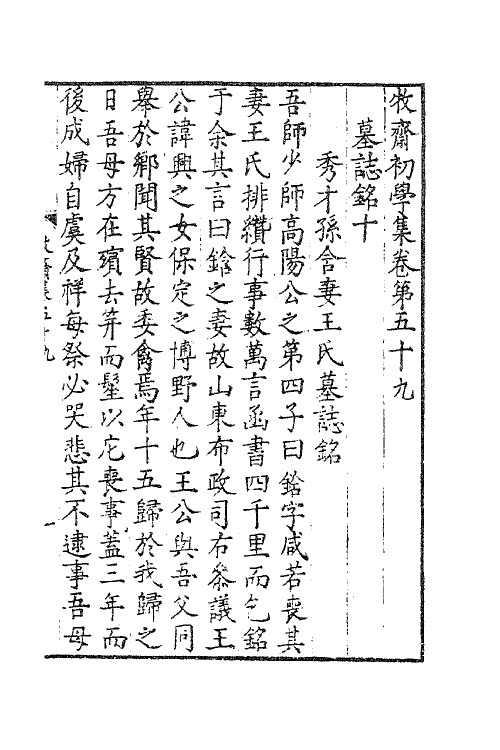 牧齋初學集卷第五十九
墓誌銘十
秀才孫含妻王氏墓誌銘
吾師少師高陽公之第四子曰鋡字咸若喪其
妻王氏排纘行事數萬言函書四千里而乞銘
于余其言曰鋡之妻故山東布政司右叅議王
公諱興之女保定之博野人也王公與吾父同
舉於鄉聞其賢故委禽焉年十五歸於我歸之
日吾母方在殯去笄而髽以它喪事蓋三年而
後成婦自虞及祥每祭必哭悲其不逮事吾母
文齋集五十九
一